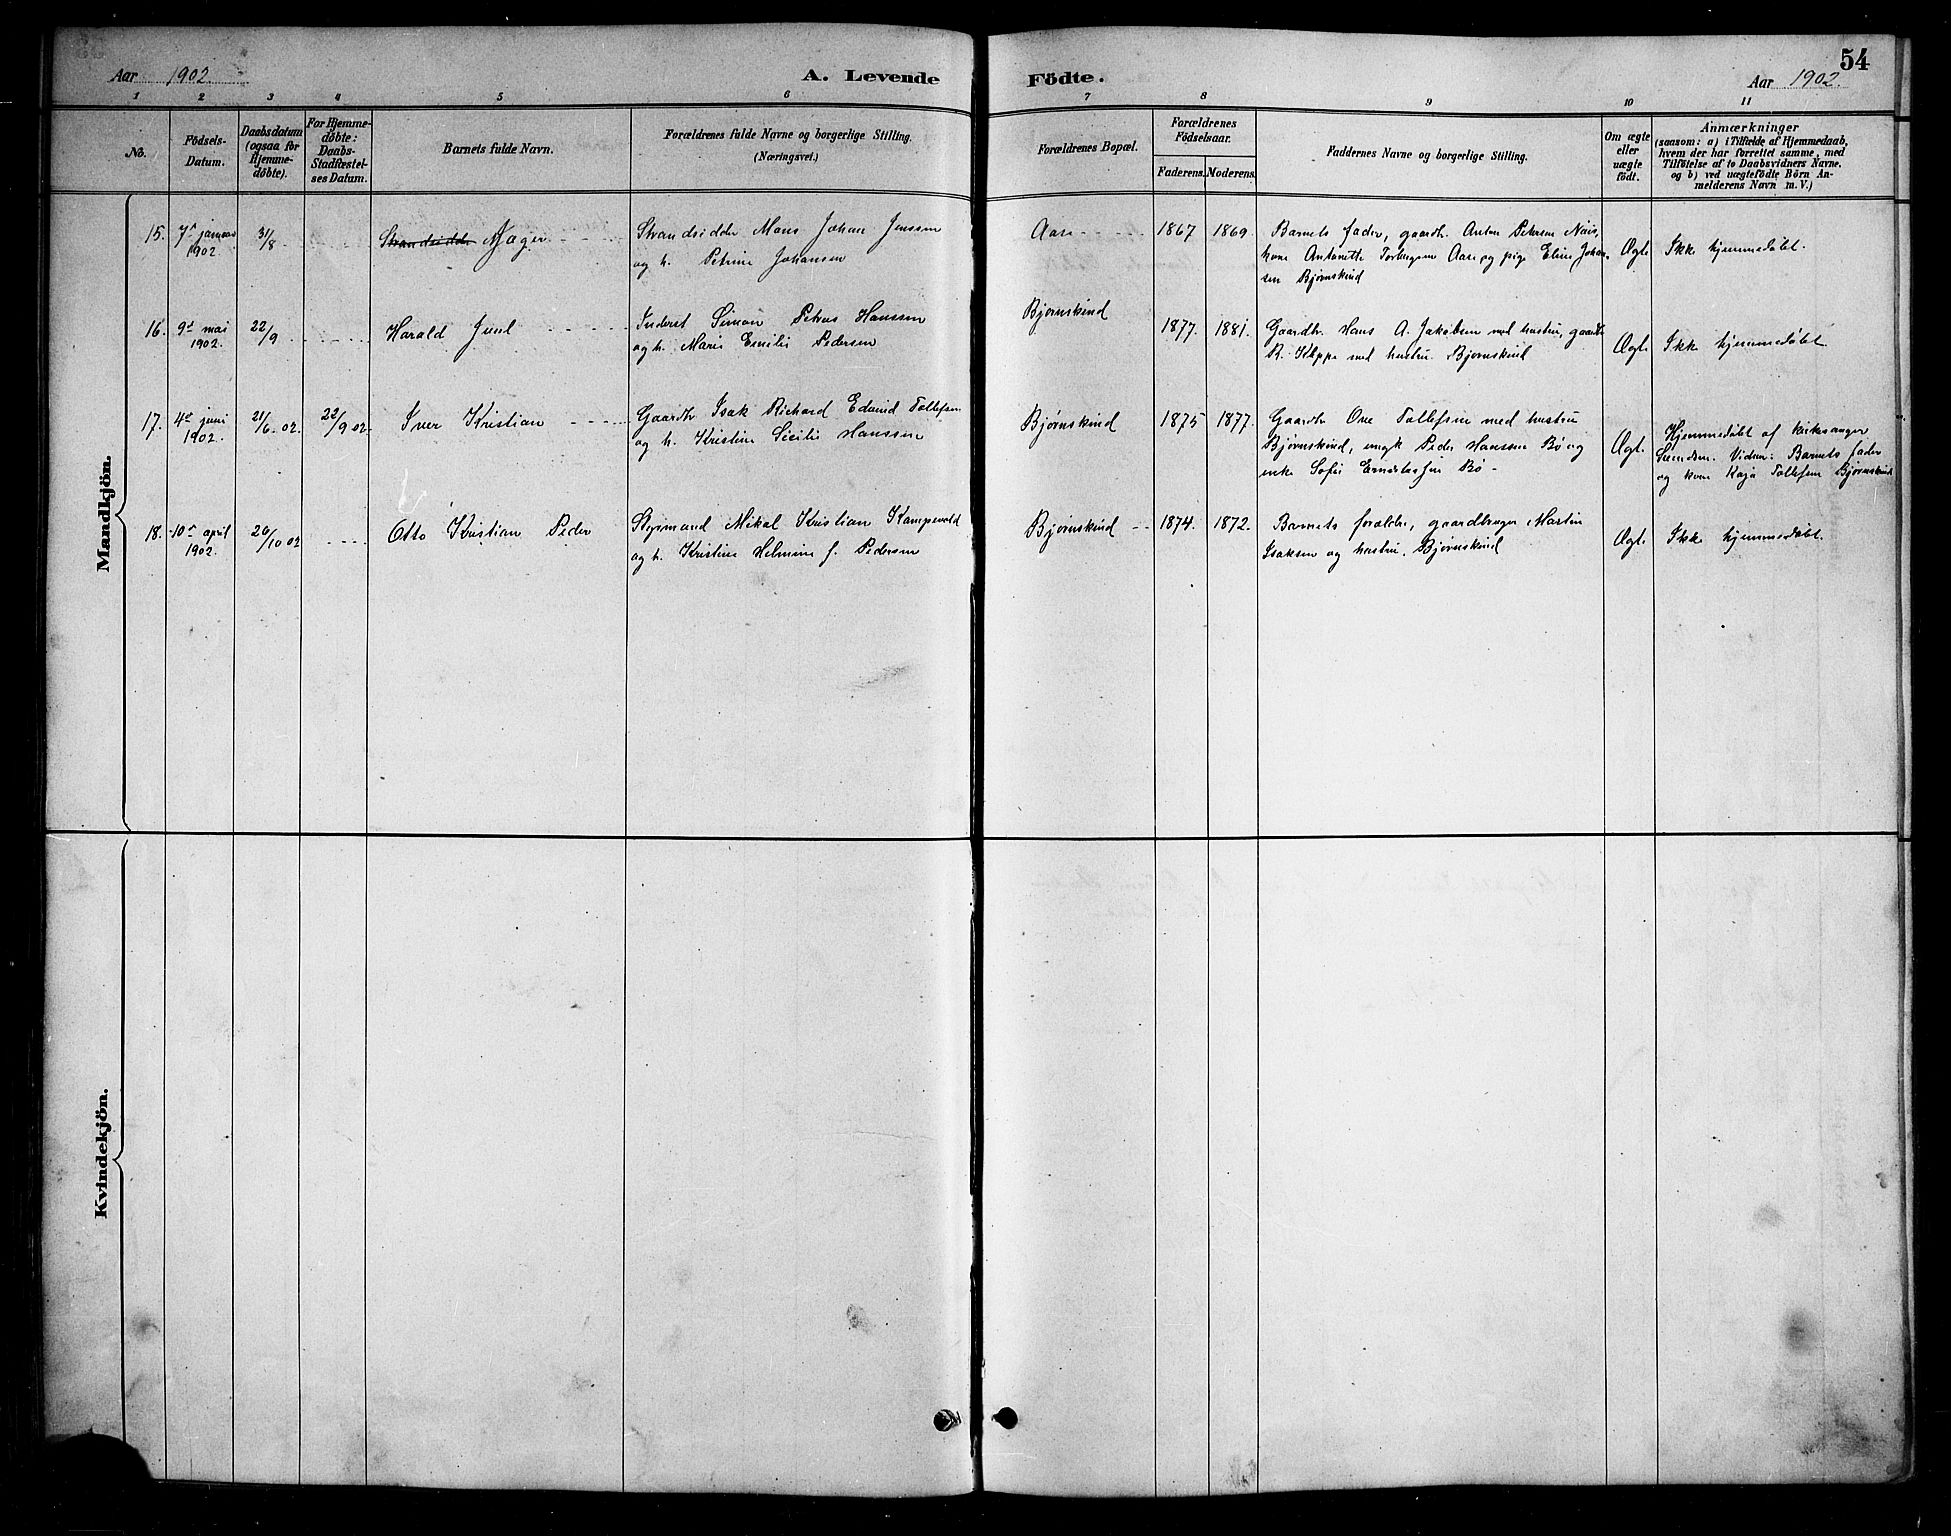 54
Aar 1902.
A. Levende
Födte.
Aar 1902.
1 2 3 4 5 6 7 8 9 10 11
No.
Födsels-
Datum.
Daabsdatum
(ogsaa for
Hjemme-
döbte).
For Hjemme-
döbte:
Daabs-
Stadfæstel-
ses Datum.
Barnets fulde Navn.
Forældrenes fulde Navne og borgerlige Stilling.
(Næringsvei.)
Forældrenes Bopæl.
Forældrenes
Födselsaar.
Faderens. Moderens.
Faddernes Navne og borgerlige Stilling.
Om ægte
eller
uægte
födt.
Anmærkninger
(saasom: a) i Tilfælde af Hjemmedaab,
hvem der har forrettet samme, med
Tilföielse af to Daabsvidners Navne,
og b) ved uægtefödte Börn An-
melderens Navn m. V.)
Mandkjön.
15.
7de januar
1902.
31/8
Strandsidder Ajager
Strandsidder Hans Johan Jenssen
og h. Petrine Johansen
Aase
1867
1869.
Barnets fader, gaardb. Anton Petersen Nais,
kone Antonette Aase og pige Eline Johan-
sen Bjørnskind
Ægt.
Ikke hjemmedøbt.
16.
9de mai
1902.
22/9
Harald Juul
Inderst Simon Petrus Hanssen
og h. Marie Emilie Pedersen
Bjørnskind
1877.
1881.
Gaardbr. Hans A. Jakobsen med hustru, gaardb.
R. Kleppe med hustru. Bjørnskind
Ægt.
Ikke hjemmedøbt.
17.
4de juni
1902.
21/6. 02.
22/9 02.
Iver Kristian
Gaardbr Isak Richard Edvind Tollefsen
og h. Kristine Sicilie Hanssen
Bjørnskind
1875
1877.
Gaardbr Ove Tollefsen med hustru
Bjørnskind, ungk Peder Hanssen Bø og
enke Sofie Bø
Ægt.
Hjemmedøbt af kirkesanger
Vidner: Barnets fader
og kone Kaja Tollefsen Bjørnskind
18.
10de april
1902.
20/10 02
Otto Kristian Peder
Styrmand Mikal Kristian Kampevold
og h. Kristine Helmine f. Pedersen
Bjørnskind
1874.
1872.
Barnets forældre, gaardbruger Martin
Isaksen og hustru. Bjørnskind
Ægt.
Ikke hjemmedøbt.
Kvindekjön.